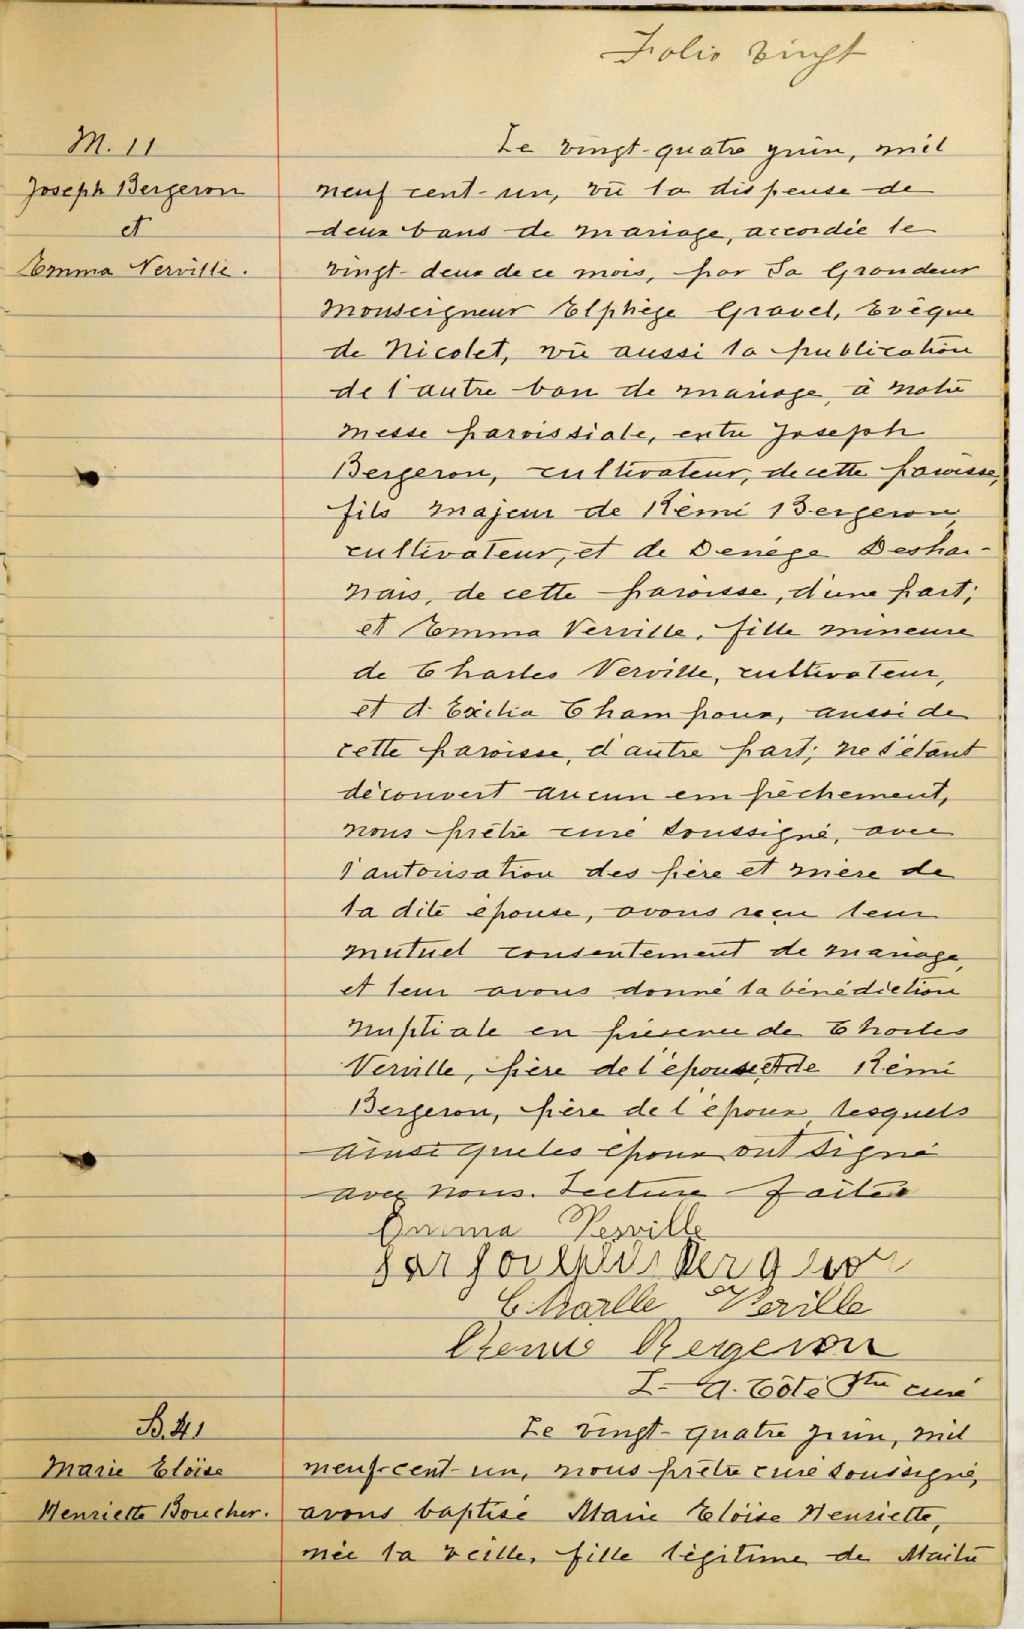 Folio vingt
M. 11
Joseph Bergeron
et
Emma Verville.
Le vingt-quatre juin, mil
neuf cent-un, vu la dispense de
deux bans de mariage, accordée le
vingt-deux de ce mois, par Sa Grandeur
Monseigneur Elphège Gravel, Evêque
de Nicolet, vu aussi la publication
de l'autre ban de mariage, à notre
messe paroissiale, entre Joseph
Bergeron, cultivateur, de cette paroisse,
fils majeur de Rémi Bergeron
cultivateur, et de Deshai-
nais, de cette paroisse, d'une part;
et Emma Verville, fille mineure
de Charles Verville, cultivateur,
et d' Champoux, aussi de
cette paroisse, d'autre part; ne s'étant
découvert aucun empêchement,
nous prêtre curé soussigné, avec
l'autorisation des père et mère de
la dite épouse, avons reçu leur
mutuel consentement de mariage,
et leur avons donné la bénédiction
nuptiale en présence de Charles
Verville, père de l'épouse et de Rémi
Bergeron, père de l'époux lesquels
ainsi que les époux ont signé
avec nous. Lecture faite
Emma Verville
Bergeron
Charlle Verille
Remie Bergeron
L. A. Côté Ptre curé
B. 41
Marie Eloïse
Henriette Boucher.
Le vingt-quatre juin, mil
neuf-cent-un, nous prêtre curé soussigné,
avons baptisé Marie Eloïse Henriette,
née la veille, fille légitime de